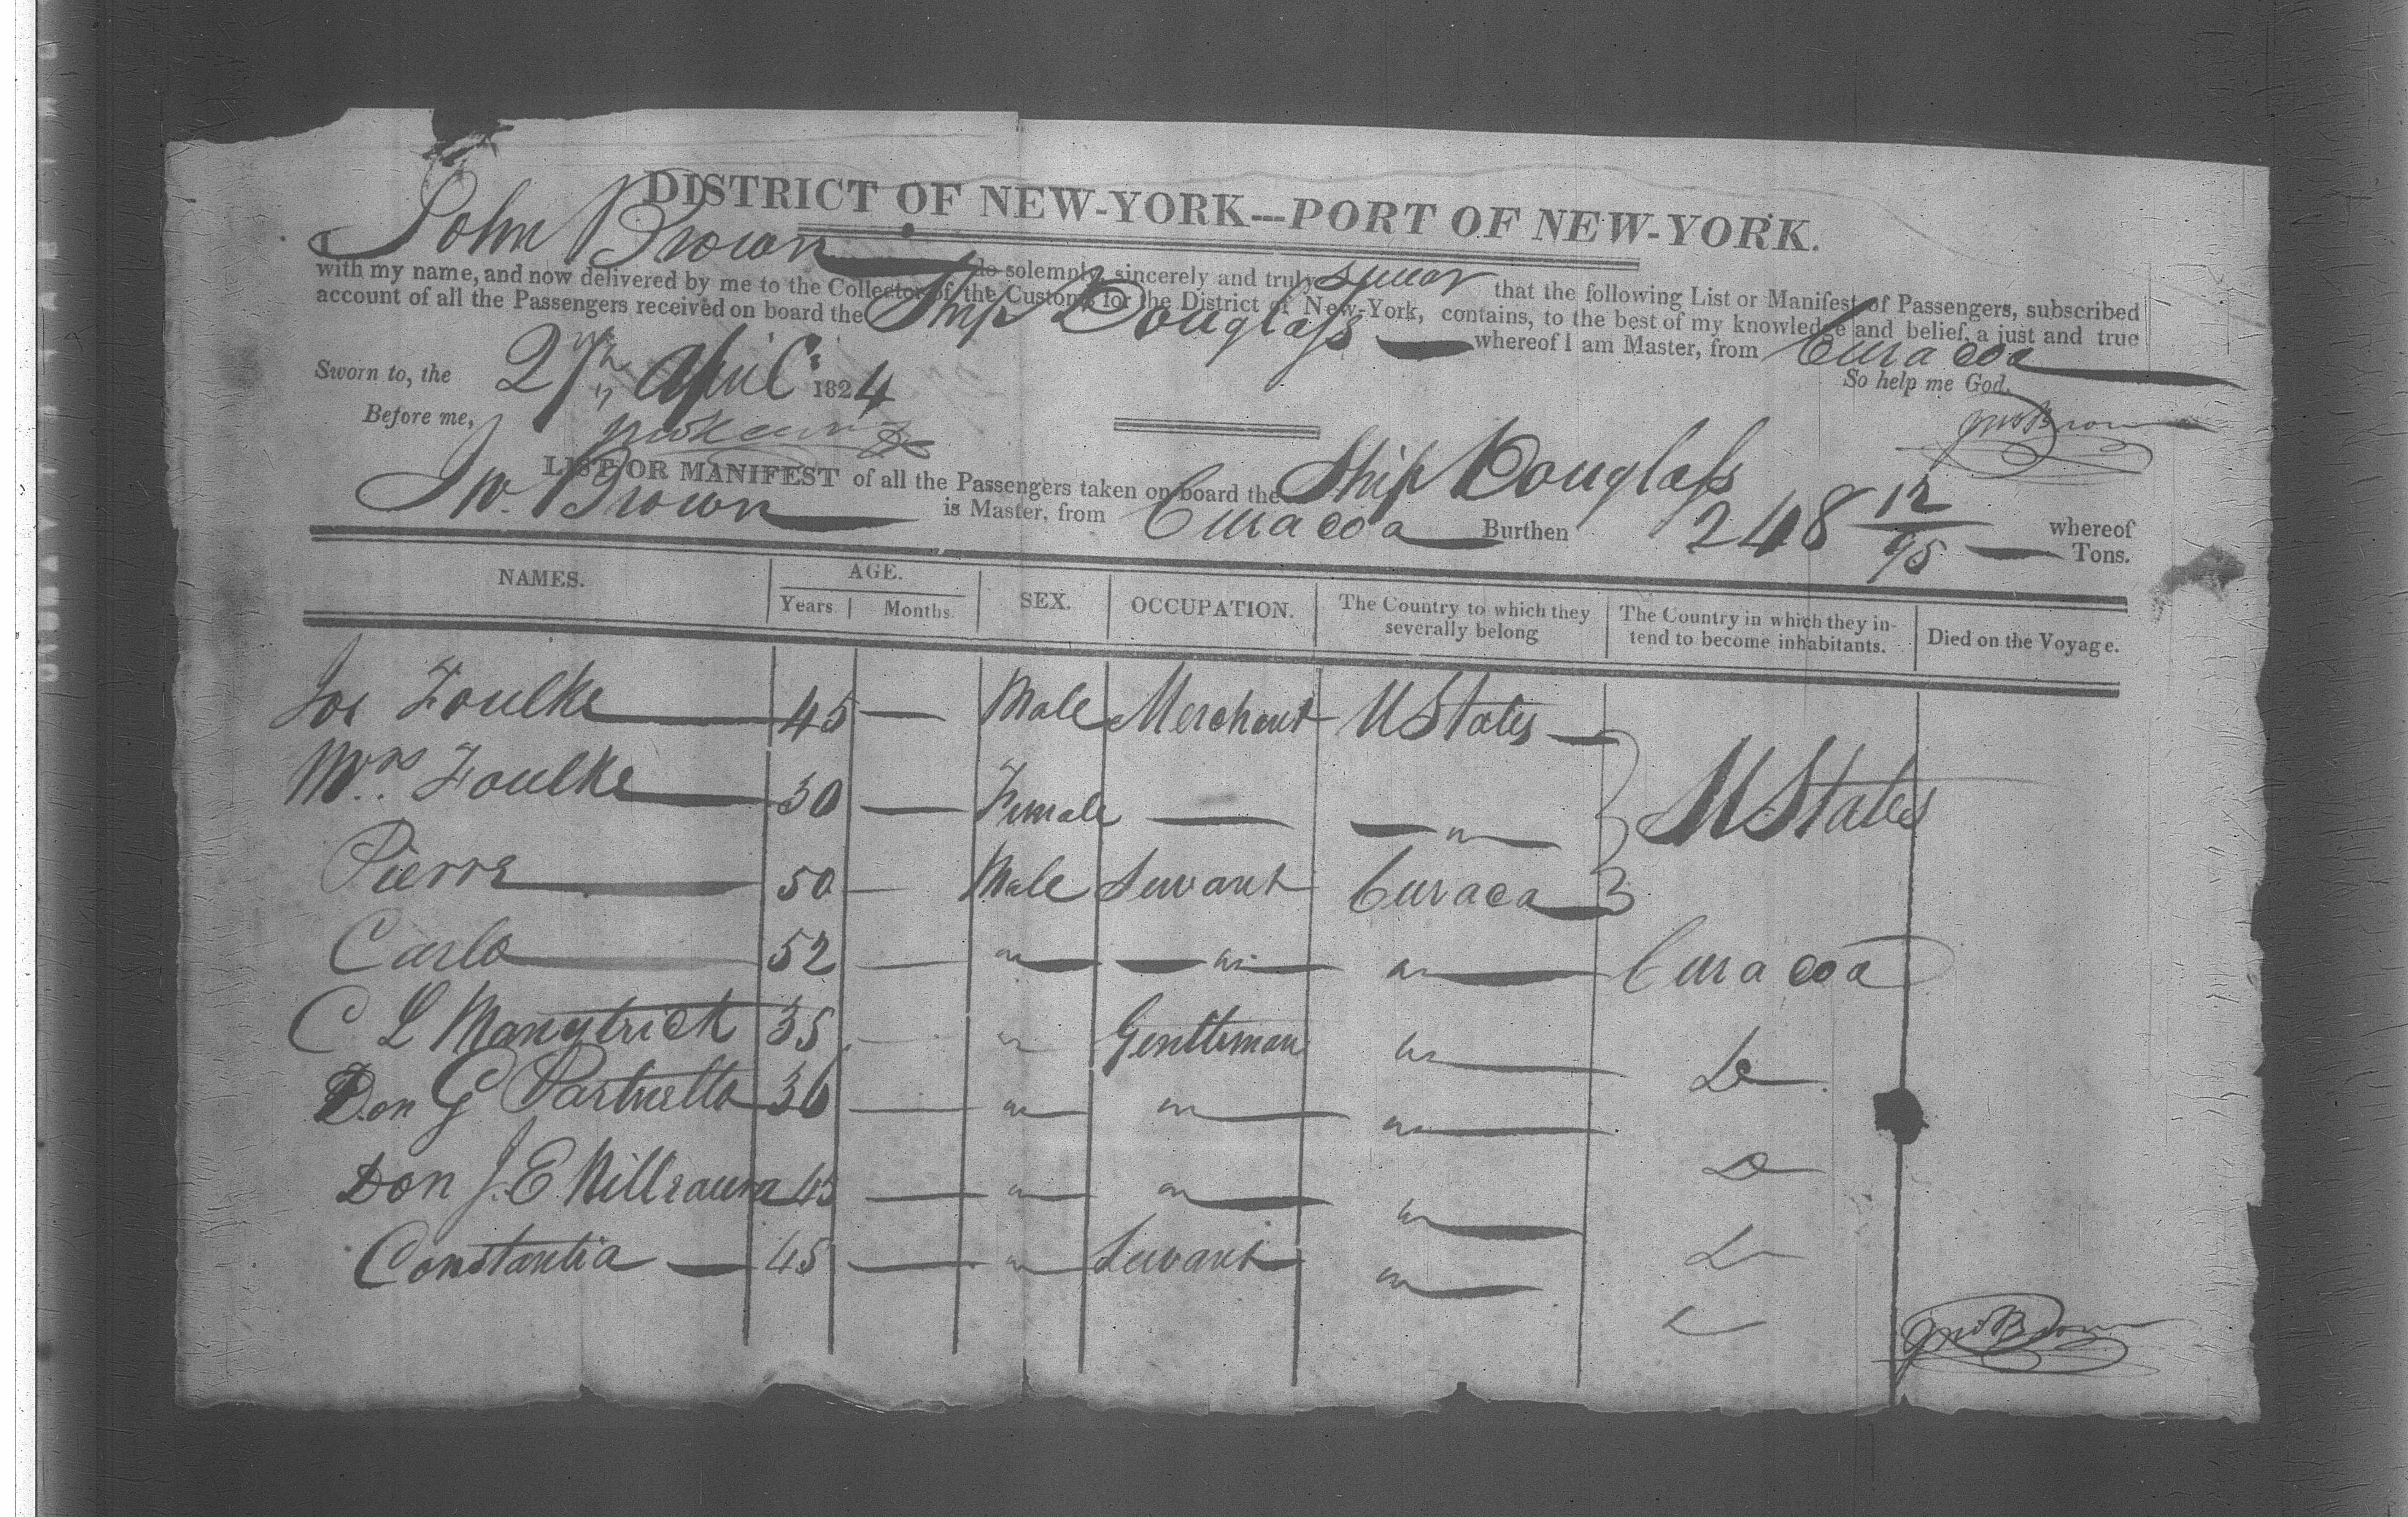 DISTRICT OF NEW-YORK---PORT OF NEW-YORK.
I John Brown do solemnly, sincerely and truly swear that the following List or Manifest of Passengers, subscribed
with my name, and now delivered by me to the Collector of the Customs for the District of New-York, contains, to the best of my knowledge and belief, a just and true
account of all the Passengers received on board the Ship Douglass whereof I am Master, from Curacoa
Sworn to, the 27th April 1824 So help me God.
Before me, Jno Brown
LIST OR MANIFEST of all the Passengers taken on board the Ship Douglass whereof
Jno. Brown is Master, from Curacoa Burthen 248 12/95 Tons.
NAMES. AGE. Years Months. SEX. OCCUPATION. The Country to which they severally belong The Country in which they intend to become inhabitants. Died on the Voyage.
Jos Foulke 45 — Male Merchant U States
Mrs. Foulke 30 — Female — — " — U States
Pierre 50 — Male Servant Curaca
Carlo 52 — " — " — " — Curacoa
C L 35 — " Gentleman " — Do
Don G 36 — " — " — " — Do
Don J. E 45 — " — " — " — Do
Constantia — 45 — " — Servant " — Do
Jno Brown